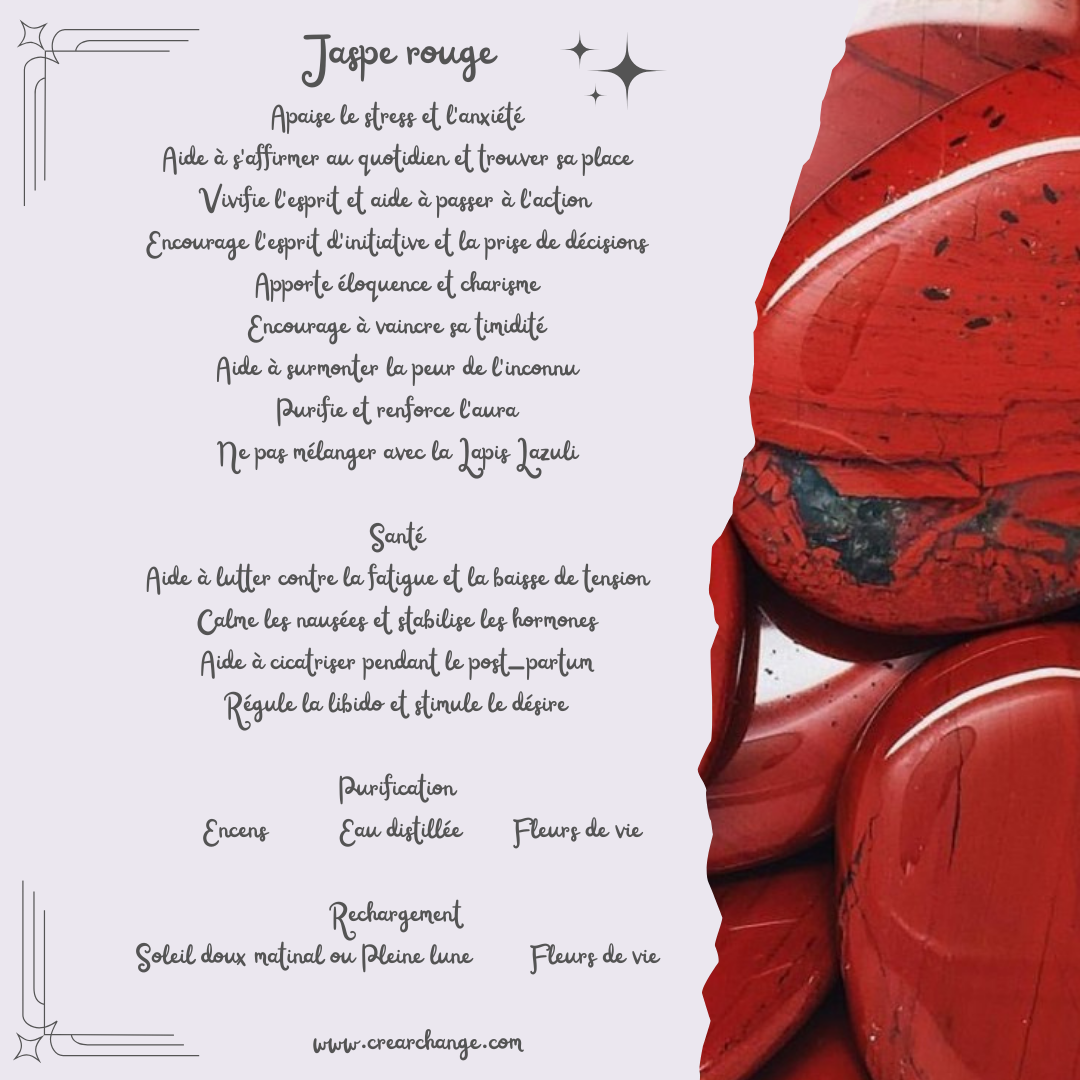 Jaspe rouge
Apaise le stress et l'anxiété
Aide à s'affirmer au quotidien et trouver sa place
Vivifie l'esprit et aide à passer à l'action
Encourage l'esprit d'initiative et la prise de décisions
Apporte éloquence et charisme
Encourage à vaincre sa timidité
Aide à surmonter la peur de l'inconnu
Purifie et renforce l'aura
Ne pas mélanger avec la Lapis Lazuli
Santé
Aide à lutter contre la fatigue et la baisse de tension
Calme les nausées et stabilise les hormones
Aide à cicatriser pendant le post_partum
Régule la libido et stimule le désire
Purification
Encens Eau distillée Fleurs de vie
Rechargement
Soleil doux matinal ou Pleine lune Fleurs de vie
www.crearchange.com